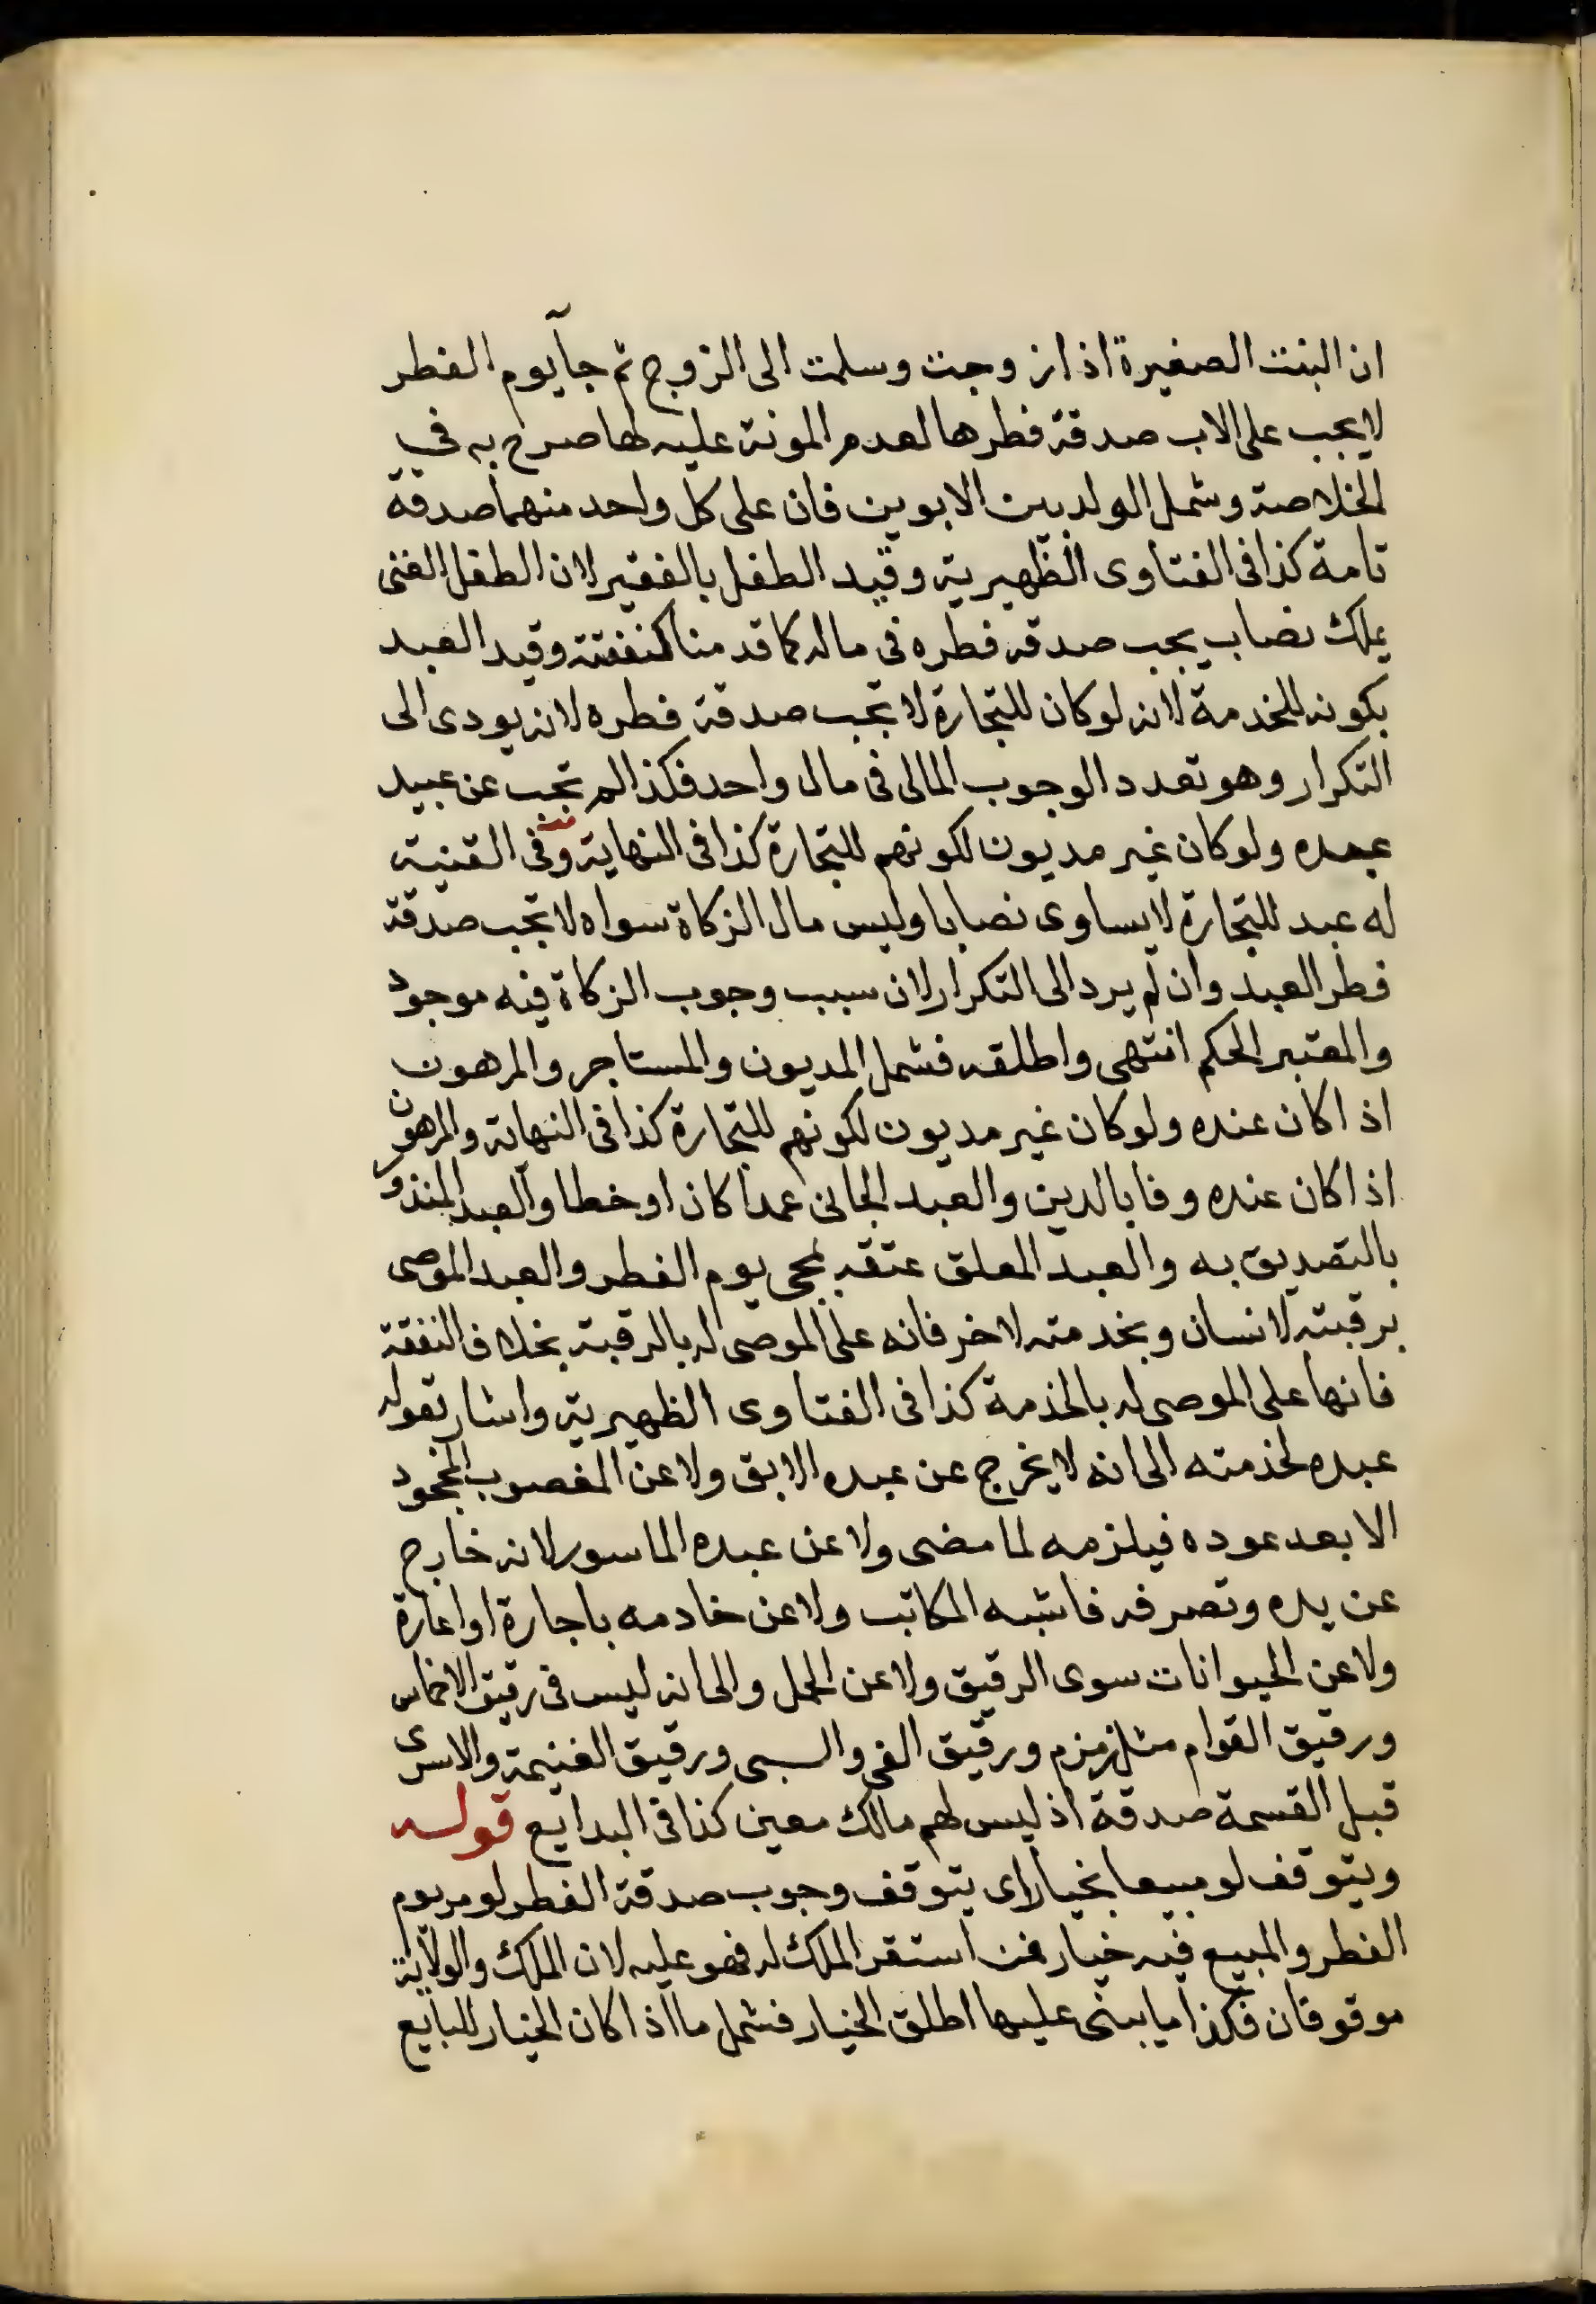 ان البنت الصغيرة اذا زوجت وسلمت الى الزوج ثم جآ يوم الفطر
لا يجب على الاب صدقة فطرها لعدم المونة عليه لها صرح به في
الخلاصة وشمل الولد بين الابوين فان على كل واحد منهما صدقة
تامة كذا فى الفتاوى الظهيرية وقيد الطفل بالفقير لان الطفل الغنى
يملك نصاب يجب صدقه فطره فى ماله كما قدمنا كنفقته وقيد العبد
بكونه للخدمة لانه لوكان للتجارة لا تجب صدقة فطره لانه يودى الى
التكرار وهو تعدد الوجوب المالى فى مال واحد فكذا لم تجب عن عبيد
عبده ولو كان غير مديون لكونهم للتجارة كذا فى النهاية وفى القنية
له عبد للتجارة لا يساوى نصابا وليس مال الزكاة سواه لا تجب صدقة
فطر العبد وان لم يرد الى التكرار لان سبب وجوب الزكاة فيه موجود
والمعتبر الحكم انتهى واطلقه فشمل المديون والمستاجر والمرهون
اذا كان عنده ولو كان غير مديون لكونهم للتجارة كذا فى النهاية والمرهون
اذا كان عنده وفا بالدين والعبد الجانى عمدا كان او خطا والعبد المنذور
بالتصديق به والعبد المعلق عتقه بمجى يوم الفطر والعبد الموصى
برقبته لانسان وبخدمته لاخر فانه على الموصى له بالرقبة بخلاف النفقة
فانها على الموصى له بالخذمة كذا فى الفتاوى الظهيرية واشار بقوله
عبده لخذمته الى انه لا يخرج عن عبده الابق ولا عن المغصوب المجحود
الا بعد عوده فيلزمه لما مضى ولا عن عبده الماسور لانه خارج
عن يده وتصرفه فاشبه المكاتب ولا عن خادمه باجارة او اعارة
ولا عن الحيوانات سوى الرقيق ولا عن الحمل والى انه ليس فى رقيق الاخماس
ورقيق القوام مثل زمزم ورقيق الفى والسبى ورقيق الغنيمة والاسرى
قبل القسمة صدقة اذ ليس لهم مالك معين كذا فى البدايع قوله
ويتوقف لو مبيعا بخيار اى يتوقف وجوب صدقة الفطر لو مر يوم
الفطر والمبيع فيه خيار فمن استقر الملك له فهو عليه لان الملك والولاية
موقوفان فكذا ما يبنى عليها اطلق الخيار فشمل ما اذا كان الخيار للبايع